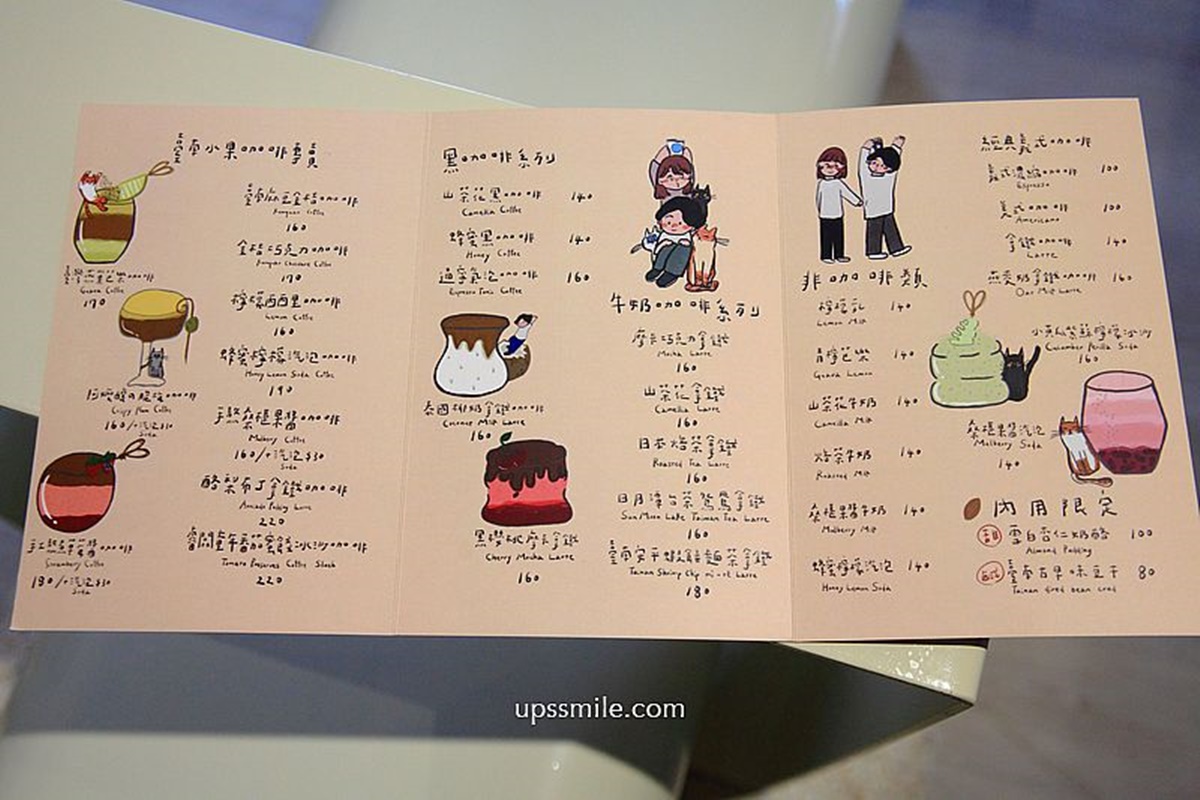 臺南小果咖啡專賣
Guava Coffee
170
Crispy Plum Coffee
160/+汽泡$30
Soda
手熬草莓醬咖啡
Strawberry Coffee
180/+汽泡$30
Soda
臺南麻豆金桔咖啡
Kumquat Coffee
160
金桔巧克力咖啡
Kumquat Chocolate Coffee
170
檸檬西西里咖啡
Lemon Coffee
160
蜂蜜檸檬汽泡咖啡
Honey Lemon Soda Coffee
190
手熬桑椹果醬咖啡
Mulberry Coffee
160/+汽泡$30
Soda
酪梨布丁拿鐵咖啡
Avocado Pudding Latte
220
Tomato Preserves Coffee Slush
220
黑咖啡系列
山茶花黑咖啡 140
Camellia Coffee
蜂蜜黑咖啡 140
Honey Coffee
通寧氣泡咖啡 160
Espresso Tonic Coffee
泰國椰奶拿鐵咖啡
Coconut Milk Latte
160
黑櫻桃摩卡拿鐵
Cherry Mocha Latte
160
牛奶咖啡系列
摩卡巧克力拿鐵
Mocha Latte
160
山茶花拿鐵
Camellia Latte
160
日本焙茶拿鐵
Roasted Tea Latte
160
日月潭台茶鴛鴦拿鐵
Sun Moon Lake Taiwan Tea Latte
160
臺南安平蝦餅麵茶拿鐵
180
非咖啡類
檸檬乳 140
Lemon Milk
青檸芭樂 140
Guava Lemon
山茶花牛奶 140
Camellia Milk
焙茶牛奶 140
Roasted Milk
桑椹果醬牛奶 140
Mulberry Milk
蜂蜜檸檬汽泡 140
Honey Lemon Soda
經典義式咖啡
義式濃縮咖啡 100
Espresso
美式咖啡 100
Americano
拿鐵咖啡 140
Latte
燕麥奶拿鐵咖啡 160
Oat Milk Latte
小黃瓜紫蘇檸檬冰沙
Cucumber Perilla Soda
160
桑椹果醬汽泡
Mulberry Soda
140
內用限定
甜 雪白杏仁奶酪 100
Almond Pudding
鹹 臺南古早味豆干 80
upssmile.com